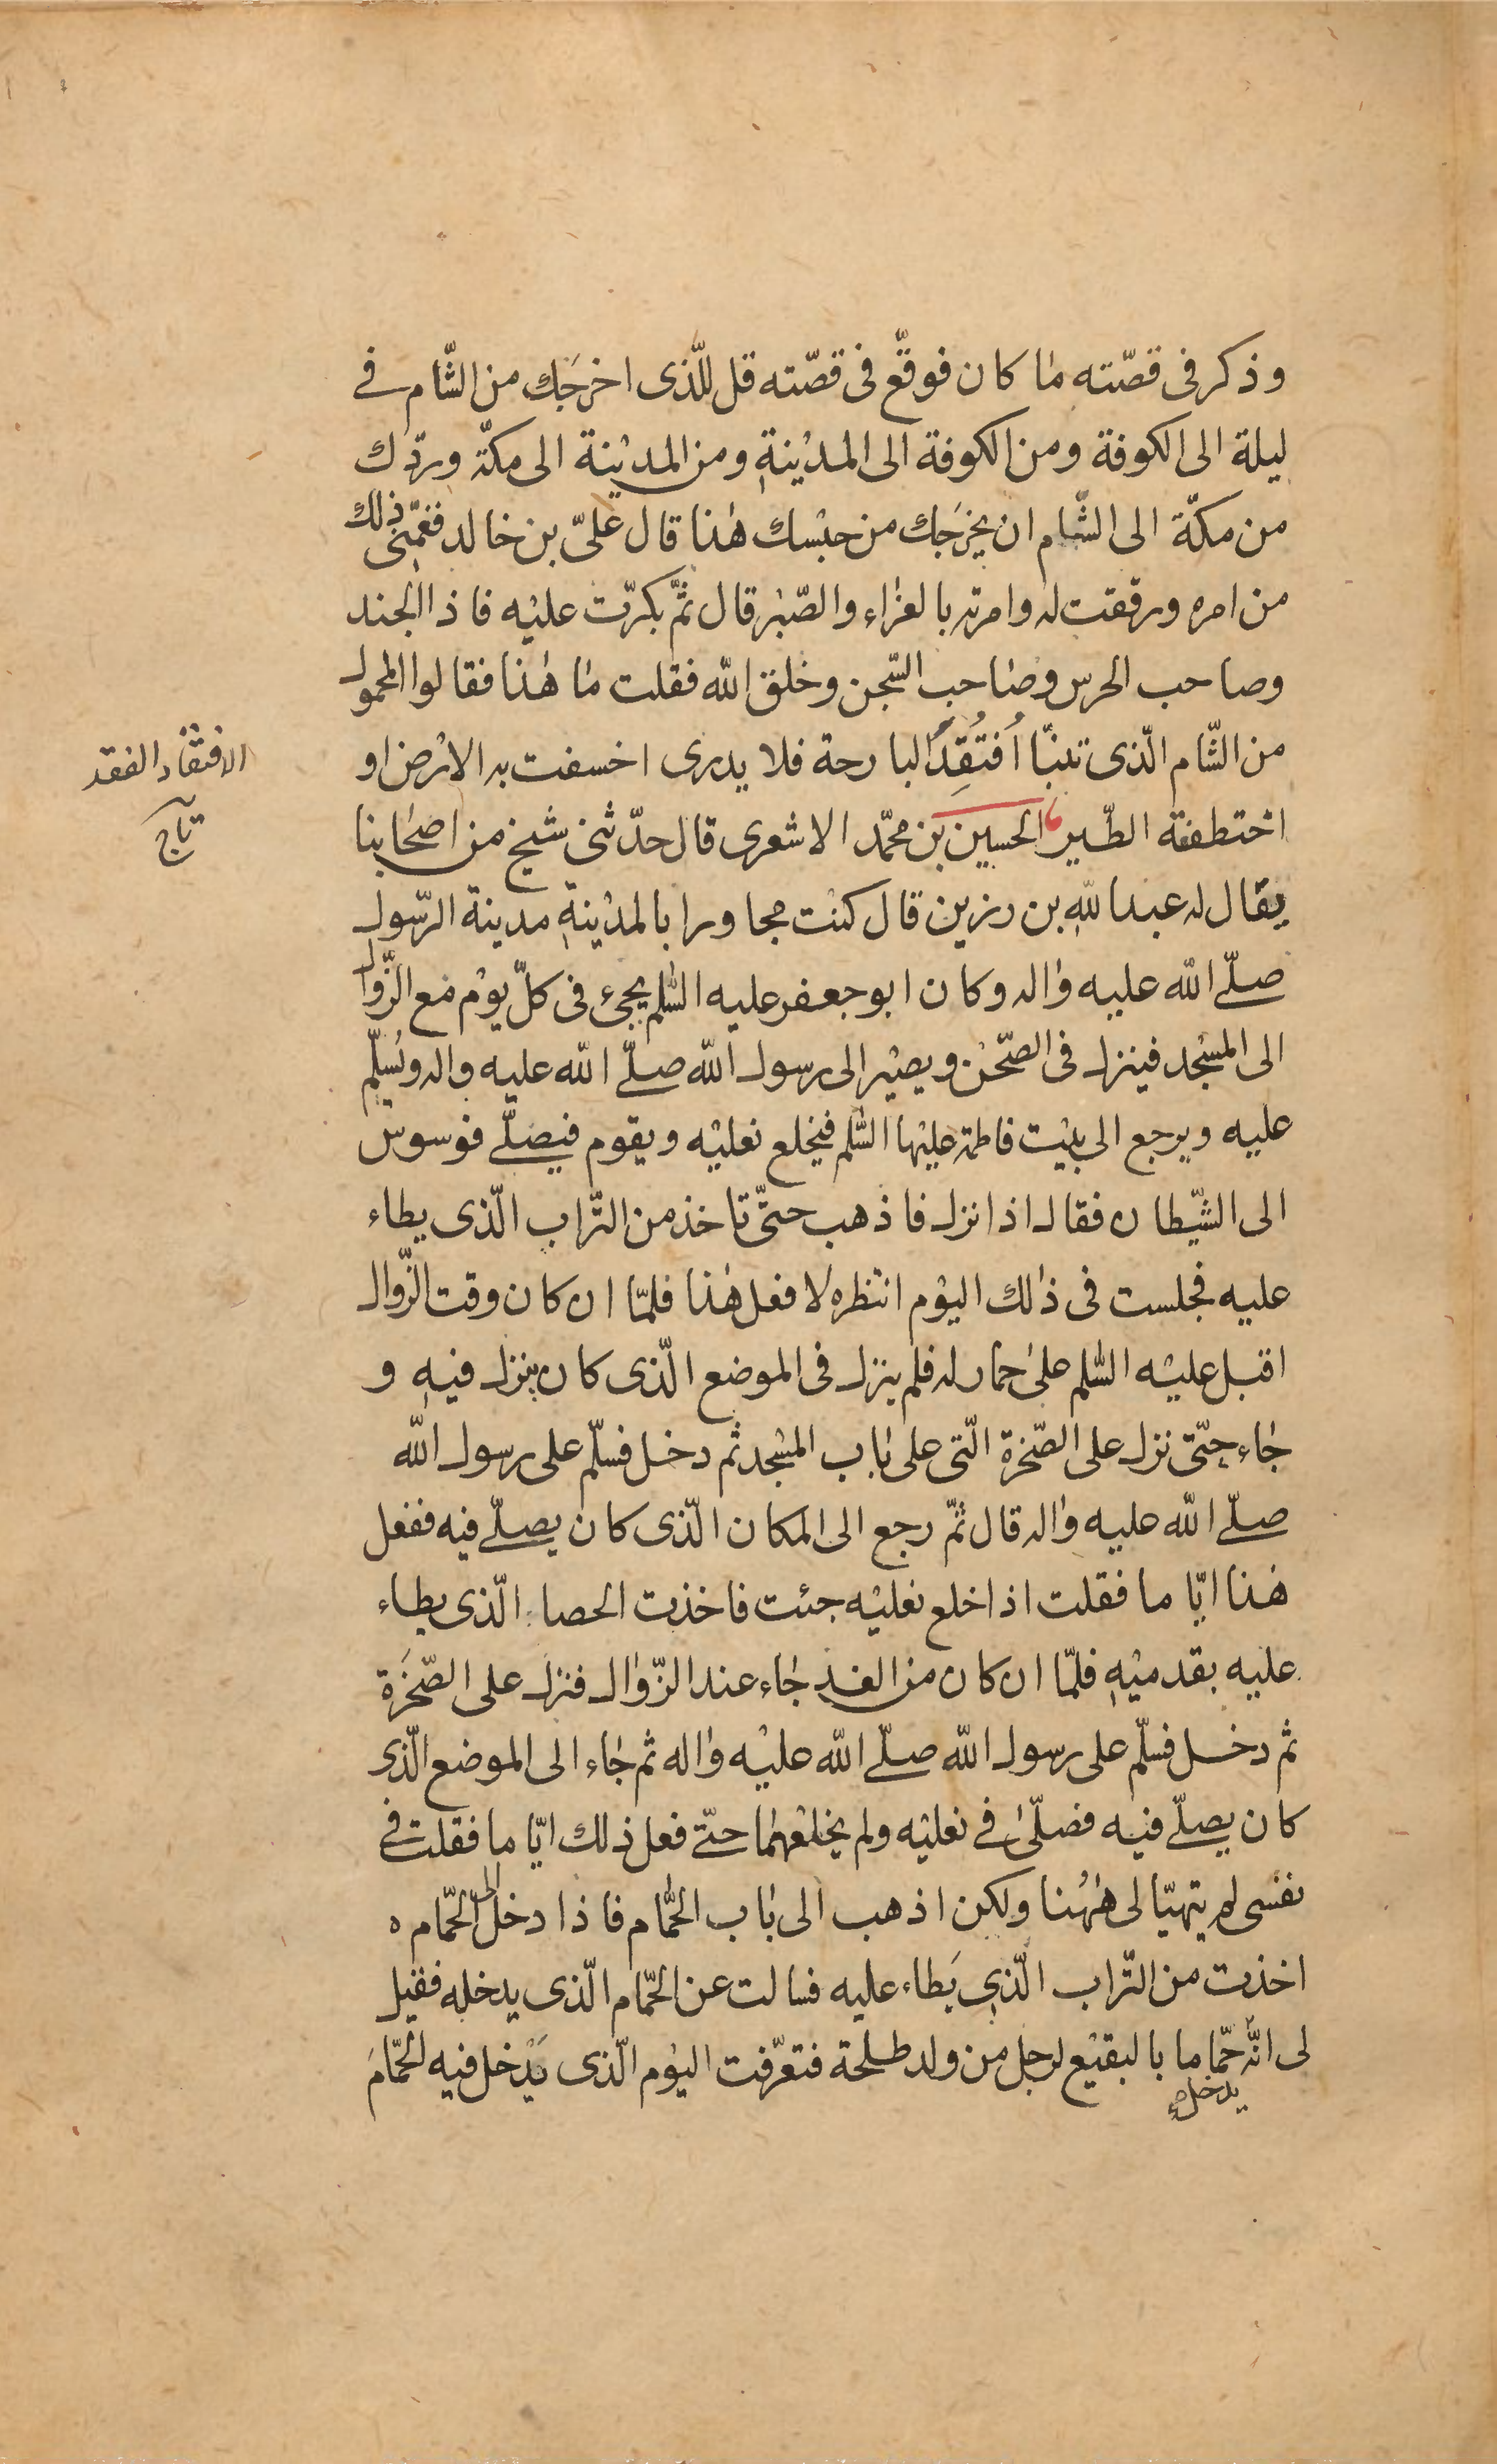 وذكر فى قصّته ما كان فوقّع فى قصّته قل للّذى اخرجَك من الشّام فے
ليلة الى الكوفة ومن الكوفة الى المدينةِ ومن المدينة الى مكّة وردّك
من مكّة الى الشّام ان يخرجَك من حبْسك هذا قال علىّ بن خالد فغمّنى ذلك
من امره ورققت له وامرته بالعزاء والصّبر قال ثمّ بكرّت عليْه فاذا الجند
وصاحب الحرس وصاحب السّجن وخلق اللّه فقلت ما هذا فقالوا المحمول
من الشّام الّذى تنبّا اُفتُقِدَ البارحة فلا يدرى اخسفت به الارْض او
اختطفته الطّير الحسين بن محمّد الاشعرى قال حدّثنى شيخ من اصحابنا
يقال له عبد اللّهِ بن رزين قال كنْت مجاورا بالمدْينةِ مدينة الرّسول
صلّے اللّه عليه واله وكان ابو جعفر عليه السّلم يجىء فى كلّ يوْم مع الزّوال
الى المسْجد فينزل فى الصّحْن ويصيْر الى رسول اللّه صلّے اللّه عليه واله ويُسلّم
عليه ويرجع الى بيْت فاطمة عليْها السّلم فيخلع نعليْه ويقوم فيصلّے فوسوس
الى الشّيطان فقال اذا نزل فاذهب حتّى تاخذ من التّراب الّذى يطاء
عليه فجلست فى ذلك اليوْم انتظره لافعل هذا فلمّا ان كان وقت الزّوال
اقبل عليْه السّلم على حمار له فلم ينزل فى الموضع الّذى كان ينزل فيهِ و
جاء حتّى نزل على الصّخرة الّتى على باب المسْجد ثم دخل فسلّم على رسول اللّه
صلّے اللّه عليه واله قال ثمّ رجع الى المكان الّذى كان يصلّے فيه ففعل
هذا ايّاما فقلت اذا خلع نعليْه جئت فاخذت الحصا الّذى يطاء
عليه بقدميْهِ فلمّا ان كان من الغد جاء عند الزّوال فنزل على الصّخرَة
ثم دخل فسلّم على رسول اللّه صلّے اللّه عليْه واله ثم جاء الى الموضع الّذى
كان يصلّے فيه فصلّى فے نعليْه ولم يخلعْهما حتّے فعل ذلك ايّاما فقلت فے
نفسى لم يتهيّا لى ههُنا ولكن اذهب الى باب الحمّام فاذا دخل الى الحمّام ه
اخذت من التّراب الّذى يَطاء عليه فسالت عن الحمّام الّذى يدخله فقيل
لى انّه يدخل حمّاما بالبقيْع لرجل من ولد طلحة فتعرّفت اليوْم الّذى يَدْخل فيه الحمّامَ
الافتقاد الفقد
تاج